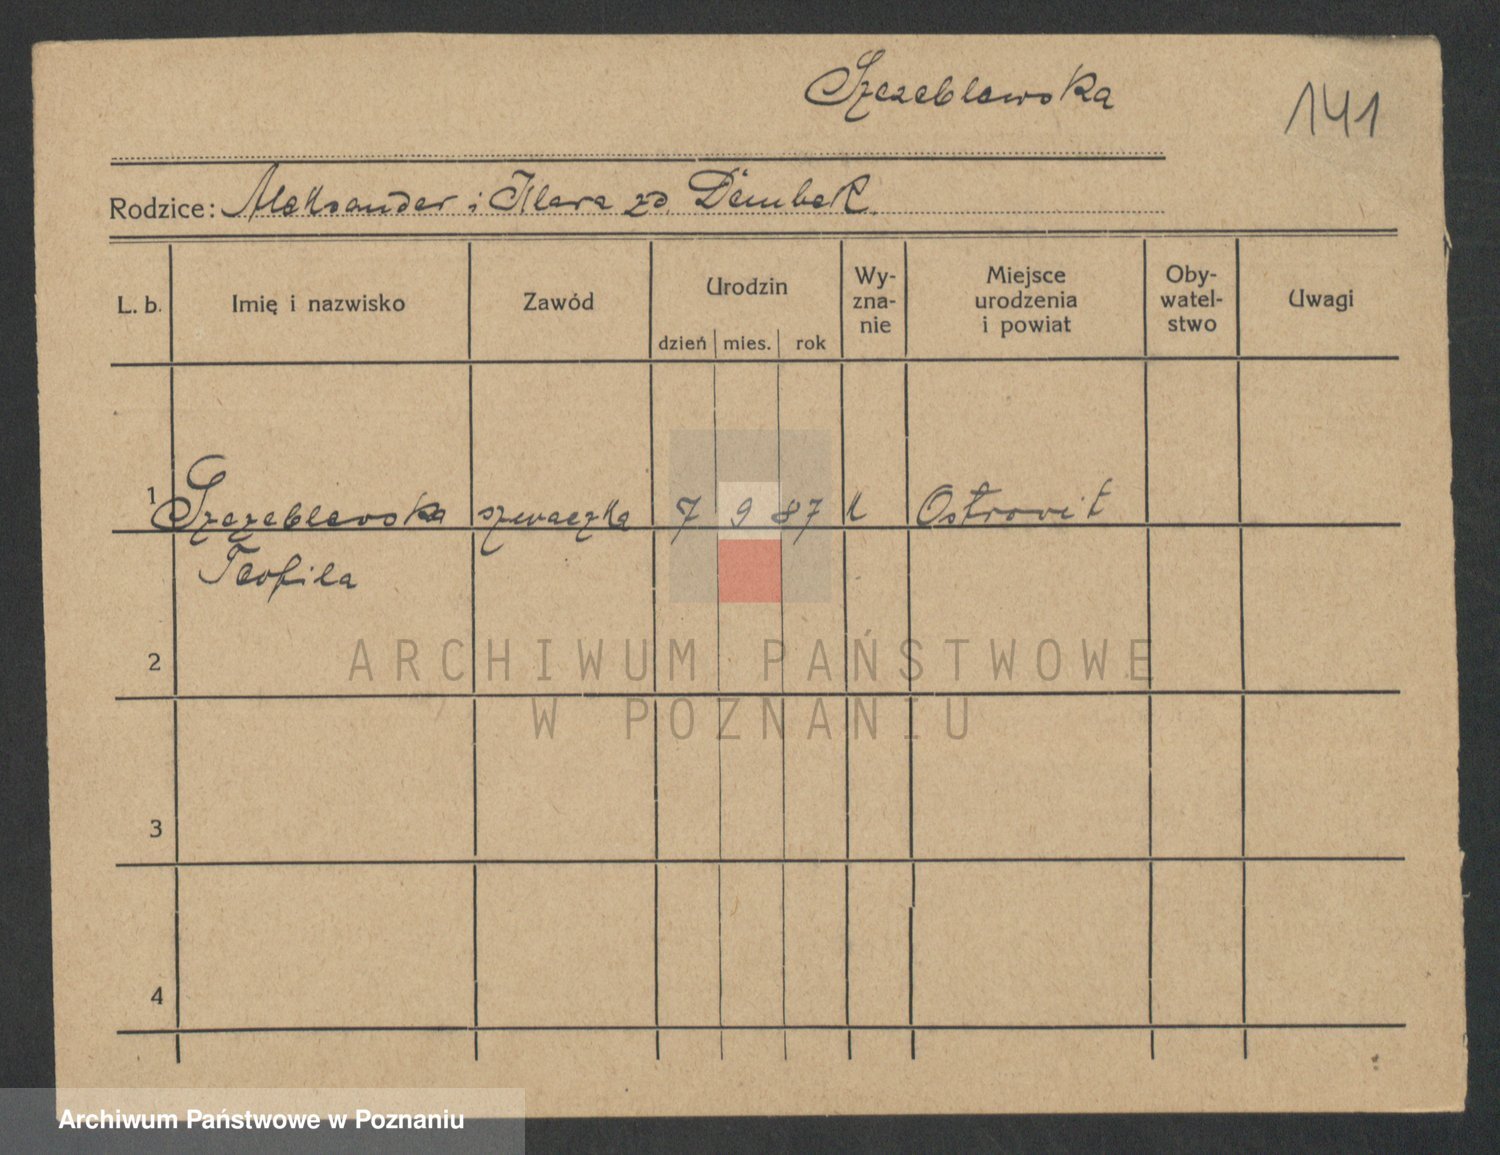 Szczeblewska
141
Rodzice: Aleksander i Klara zd. Dembek
L. b. Imię i nazwisko Zawód Urodzin dzień mies. rok Wy-zna-nie Miejsce urodzenia i powiat Oby-watel-stwo Uwagi
1 Szczeblewska szwaczka 7 9 87 k Ostrovit
Teofila
2
ARCHIWUM PAŃSTWOWE
W POZNANIU
3
4
Archiwum Państwowe w Poznaniu